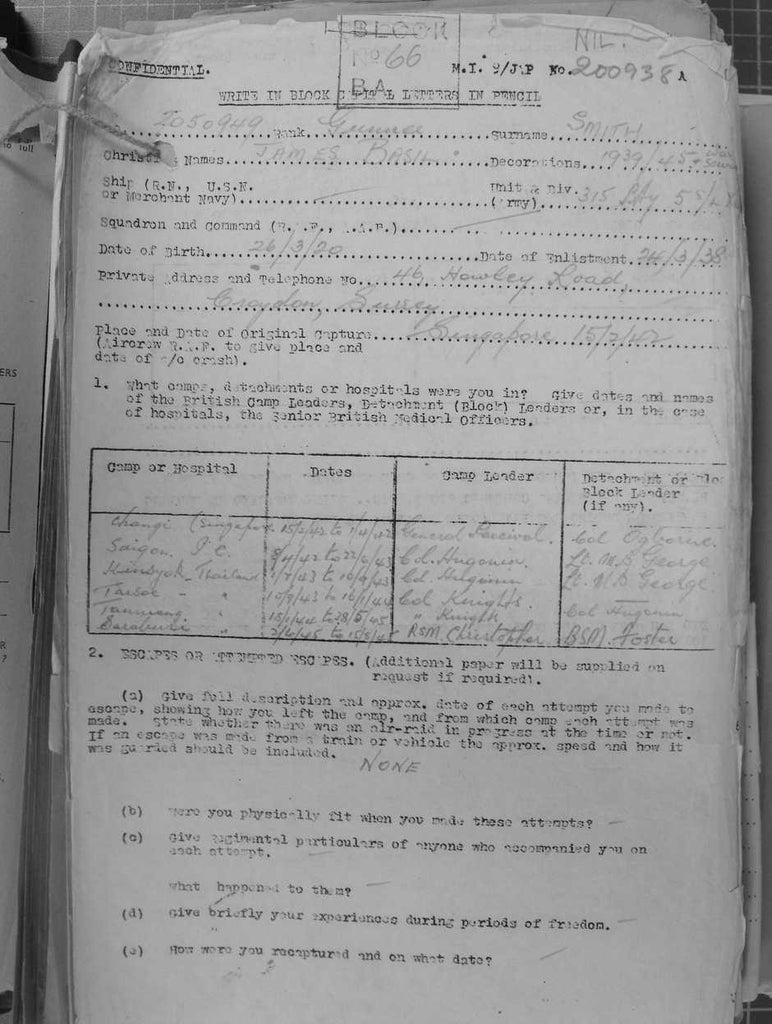 BLOCK
No 66
BA
NIL.
CONFIDENTIAL.
M.I. 9/JAP No. 200938 A
WRITE IN BLOCK CAPITAL LETTERS IN PENCIL
2050949 Rank Gunner Surname SMITH
Christian Names JAMES BASIL Decorations 1939/45
Ship (R.N., U.S.N. Unit & Div. 315 Bty 5 S/L
or Merchant Navy) (Army)
Squadron and Command (R.A.F., A.A.F.)
Date of Birth 26/3/20 Date of Enlistment 24/3/38
Private Address and Telephone No. 46, Howley Road,
Croydon, Surrey
Place and Date of Original Capture Singapore 15/2/42
(Aircrew R.A.F. to give place and
date of a/c crash).
1. What camps, detachments or hospitals were you in? Give dates and names
of the British Camp Leaders, Detachment (Block) Leaders or, in the case
of hospitals, the Senior British Medical Officers.
Camp or Hospital Dates Camp Leader Detachment or Bloc
Block Leader
(if any).
Changi (Singapore 15/2/42 to General Percival. Col
Saigon. I.C. to 22/6/43 Col. Hugonin. Lt. M.B. George
Kinsyok Thailand to Col Hugonin Lt. M.B George
Tarsoe " 10/9/43 to Col Knights. Col Hugonin
" to 28/5/45 " Knight
" to RSM. Christopher BSM. Foster
2. ESCAPES OR ATTEMPTED ESCAPES. (Additional paper will be supplied on
request if required).
(a) Give full description and approx. date of each attempt you made to
escape, showing how you left the camp, and from which camp each attempt was
made. State whether there was an air-raid in progress at the time or not.
If an escape was made from a train or vehicle the approx. speed and how it
was guarded should be included.
NONE
(b) Were you physically fit when you made these attempts?
(c) Give regimental particulars of anyone who accompanied you on
each attempt.
What happened to them?
(d) Give briefly your experiences during periods of freedom.
(e) How were you recaptured and on what date?